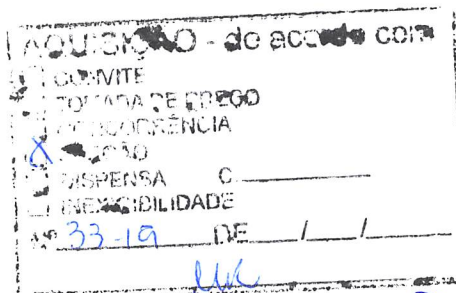 AQUISIÇÃO - de acordo com
CONVITE
TOMADA DE PREÇO
CONCORRÊNCIA
X
DISPENSA C.
INEXIGIBILIDADE
Nº 33-19 DE / /